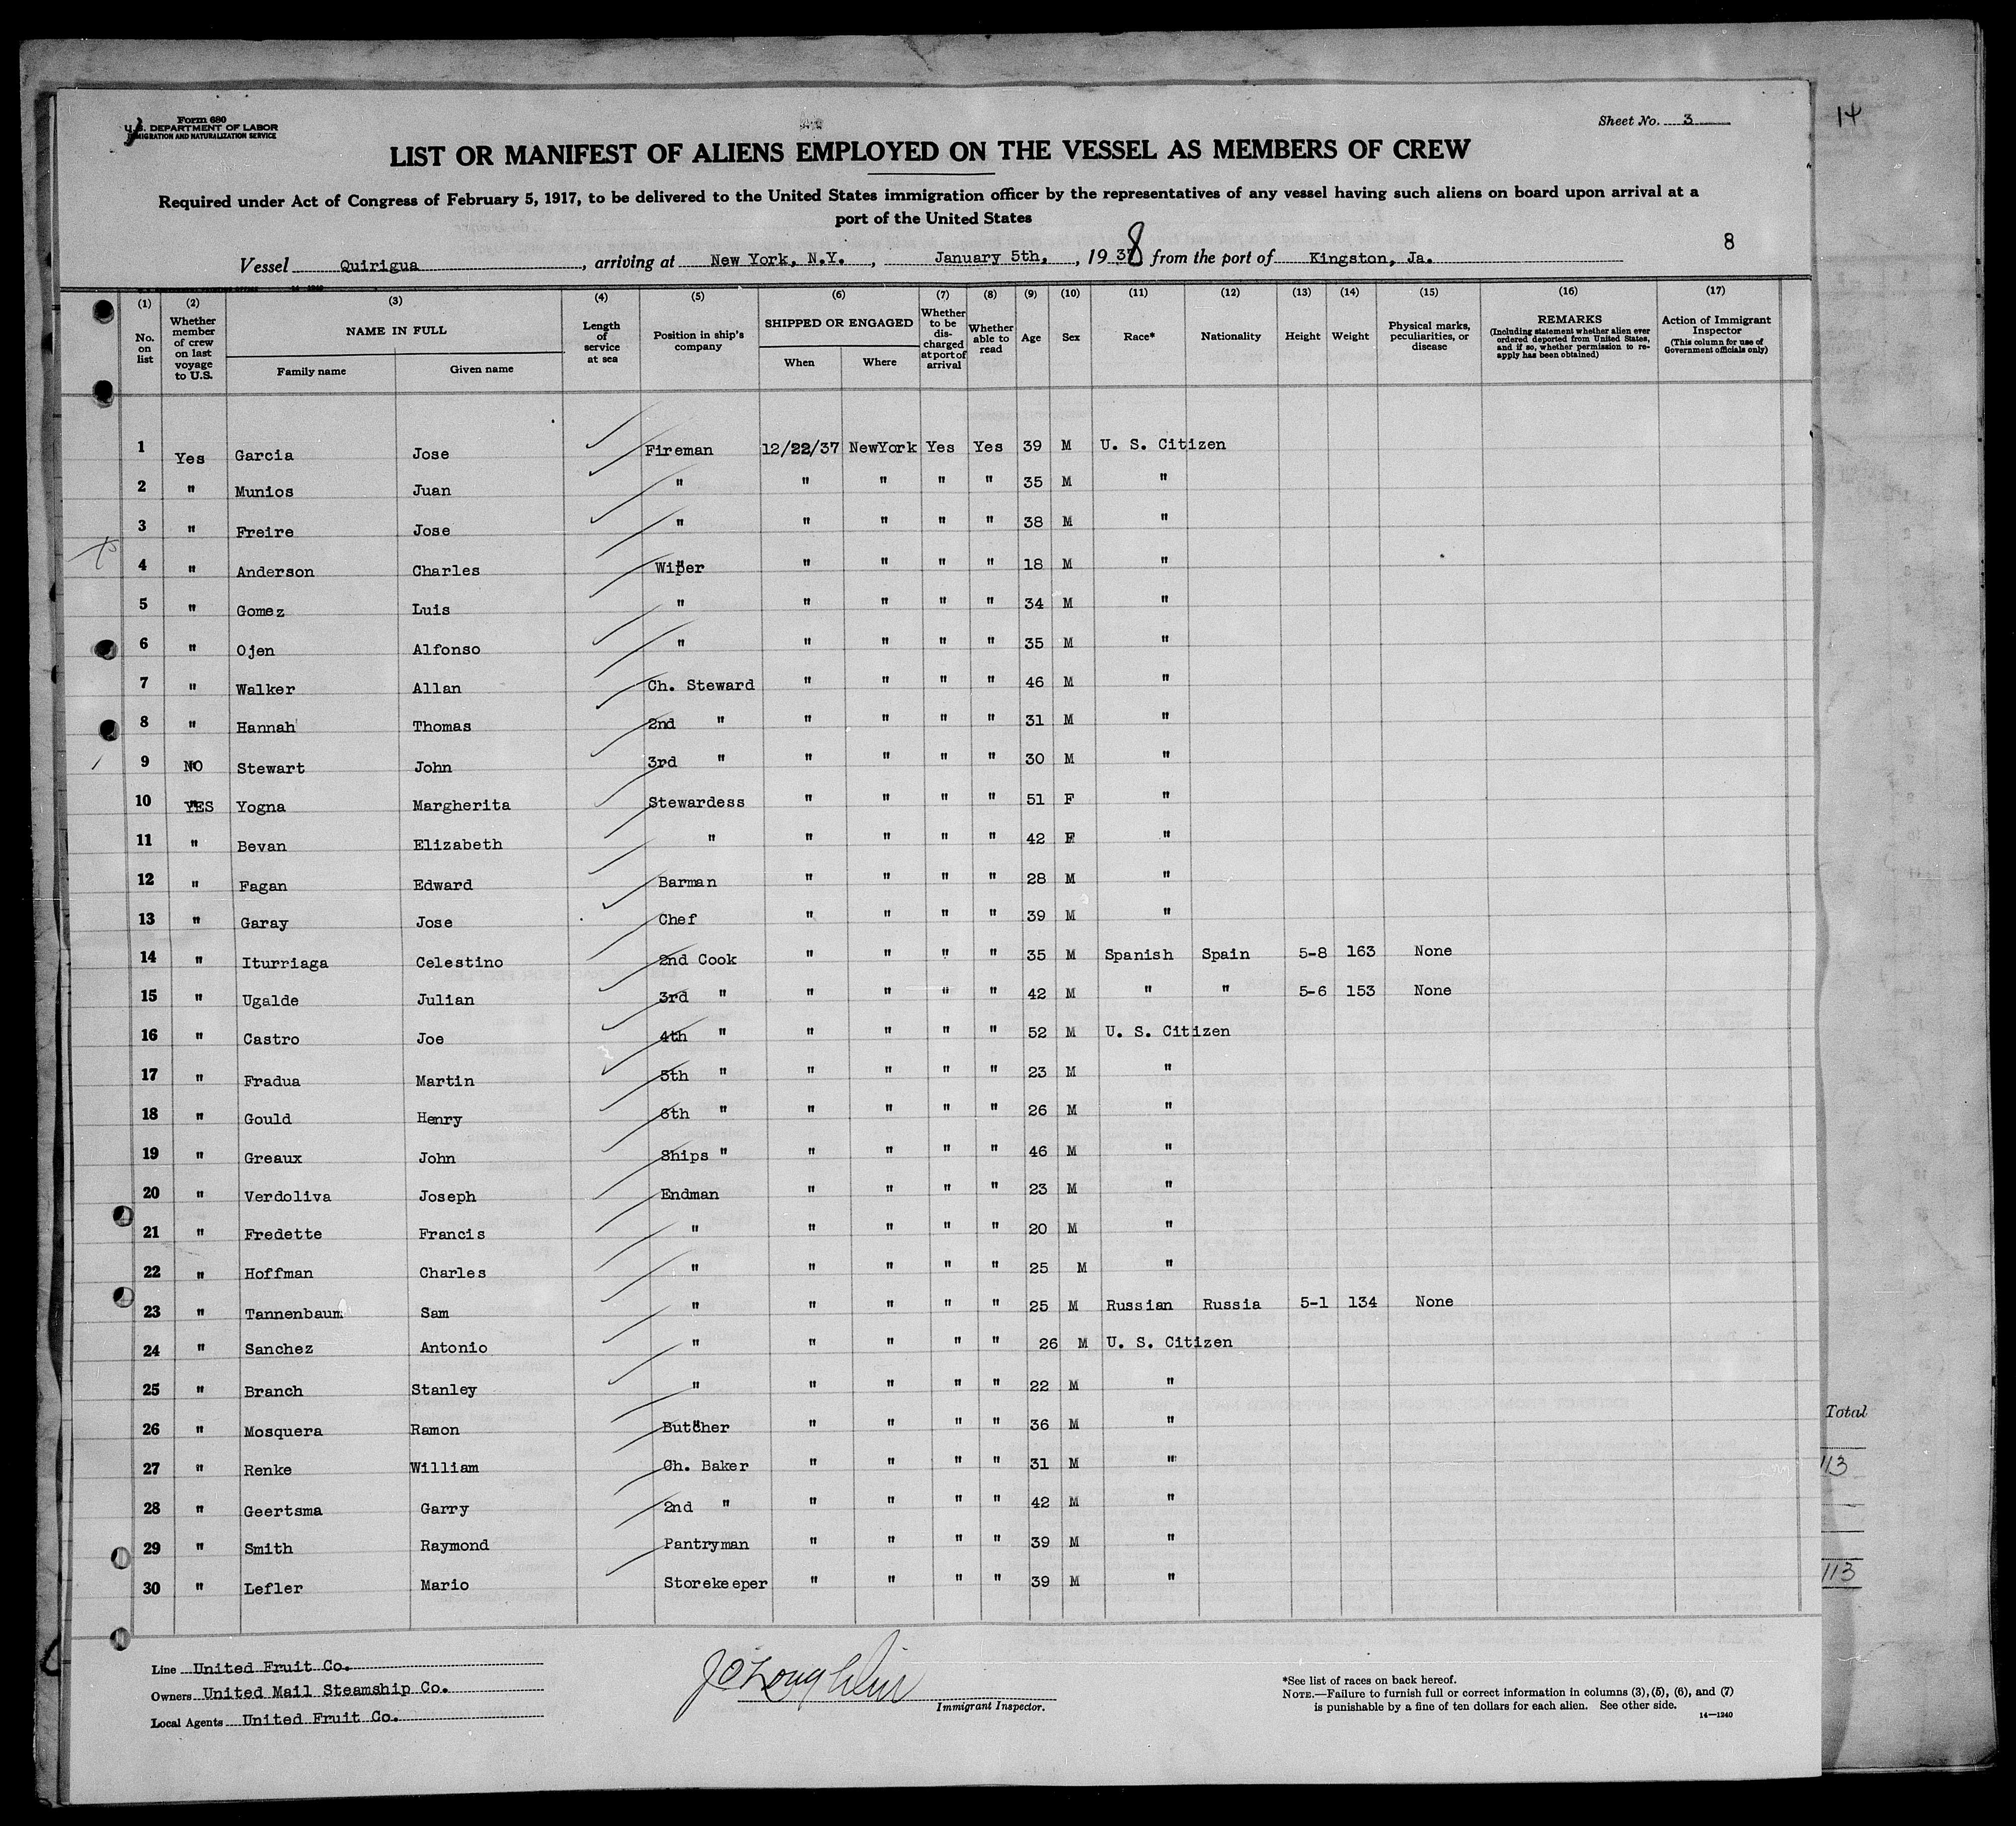 Form 680
U.S. DEPARTMENT OF LABOR
IMMIGRATION AND NATURALIZATION SERVICE
Sheet No. 3
14
LIST OR MANIFEST OF ALIENS EMPLOYED ON THE VESSEL AS MEMBERS OF CREW
Required under Act of Congress of February 5, 1917, to be delivered to the United States immigration officer by the representatives of any vessel having such aliens on board upon arrival at a
port of the United States
8
Vessel Quirigua, arriving at New York, N.Y., January 5th, , 1938 from the port of Kingston, Ja.
(1) (2) (3) (4) (5) (6) (7) (8) (9) (10) (11) (12) (13) (14) (15) (16) (17)
No. on list
Whether member of crew on last voyage to U.S.
NAME IN FULL
Family name
Given name
Length of service at sea
Position in ship's company
SHIPPED OR ENGAGED
When
Where
Whether to be discharged at port of arrival
Whether able to read
Age
Sex
Race*
Nationality
Height
Weight
Physical marks, peculiarities, or disease
REMARKS
(Including statement whether alien ever ordered deported from United States, and if so, whether permission to re-apply has been obtained)
Action of Immigrant Inspector
(This column for use of Government officials only)
1 Yes Garcia Jose Fireman 12/22/37 NewYork Yes Yes 39 M U. S. Citizen
2 " Munios Juan " " " " " 35 M "
3 " Freire Jose " " " " " 38 M "
4 " Anderson Charles Wiper " " " " 18 M "
5 " Gomez Luis " " " " " 34 M "
6 " Ojen Alfonso " " " " " 35 M "
7 " Walker Allan Ch. Steward " " " " 46 M "
8 " Hannah Thomas 2nd " " " " " 31 M "
9 NO Stewart John 3rd " " " " " 30 M "
10 YES Yogna Margherita Stewardess " " " " 51 F "
11 " Bevan Elizabeth " " " " " 42 F "
12 " Fagan Edward Barman " " " " 28 M "
13 " Garay Jose Chef " " " " 39 M "
14 " Iturriaga Celestino 2nd Cook " " " " 35 M Spanish Spain 5-8 163 None
15 " Ugalde Julian 3rd " " " " " 42 M " " 5-6 153 None
16 " Castro Joe 4th " " " " " 52 M U. S. Citizen
17 " Fradua Martin 5th " " " " " 23 M "
18 " Gould Henry 6th " " " " " 26 M "
19 " Greaux John Ships " " " " " 46 M "
20 " Verdoliva Joseph Endman " " " " 23 M "
21 " Fredette Francis " " " " " 20 M "
22 " Hoffman Charles " " " " " 25 M "
23 " Tannenbaum Sam " " " " " 25 M Russian Russia 5-1 134 None
24 " Sanchez Antonio " " " " " 26 M U. S. Citizen
25 " Branch Stanley " " " " " 22 M "
26 " Mosquera Ramon Butcher " " " " 36 M "
27 " Renke William Ch. Baker " " " " 31 M "
28 " Geertsma Garry 2nd " " " " " 42 M "
29 " Smith Raymond Pantryman " " " " 39 M "
30 " Lefler Mario Storekeeper " " " " 39 M "
Total
113
113
Line United Fruit Co.
Owners United Mail Steamship Co.
Local Agents United Fruit Co.
Immigrant Inspector.
*See list of races on back hereof.
NOTE.—Failure to furnish full or correct information in columns (3), (5), (6), and (7)
is punishable by a fine of ten dollars for each alien. See other side.
14—1240